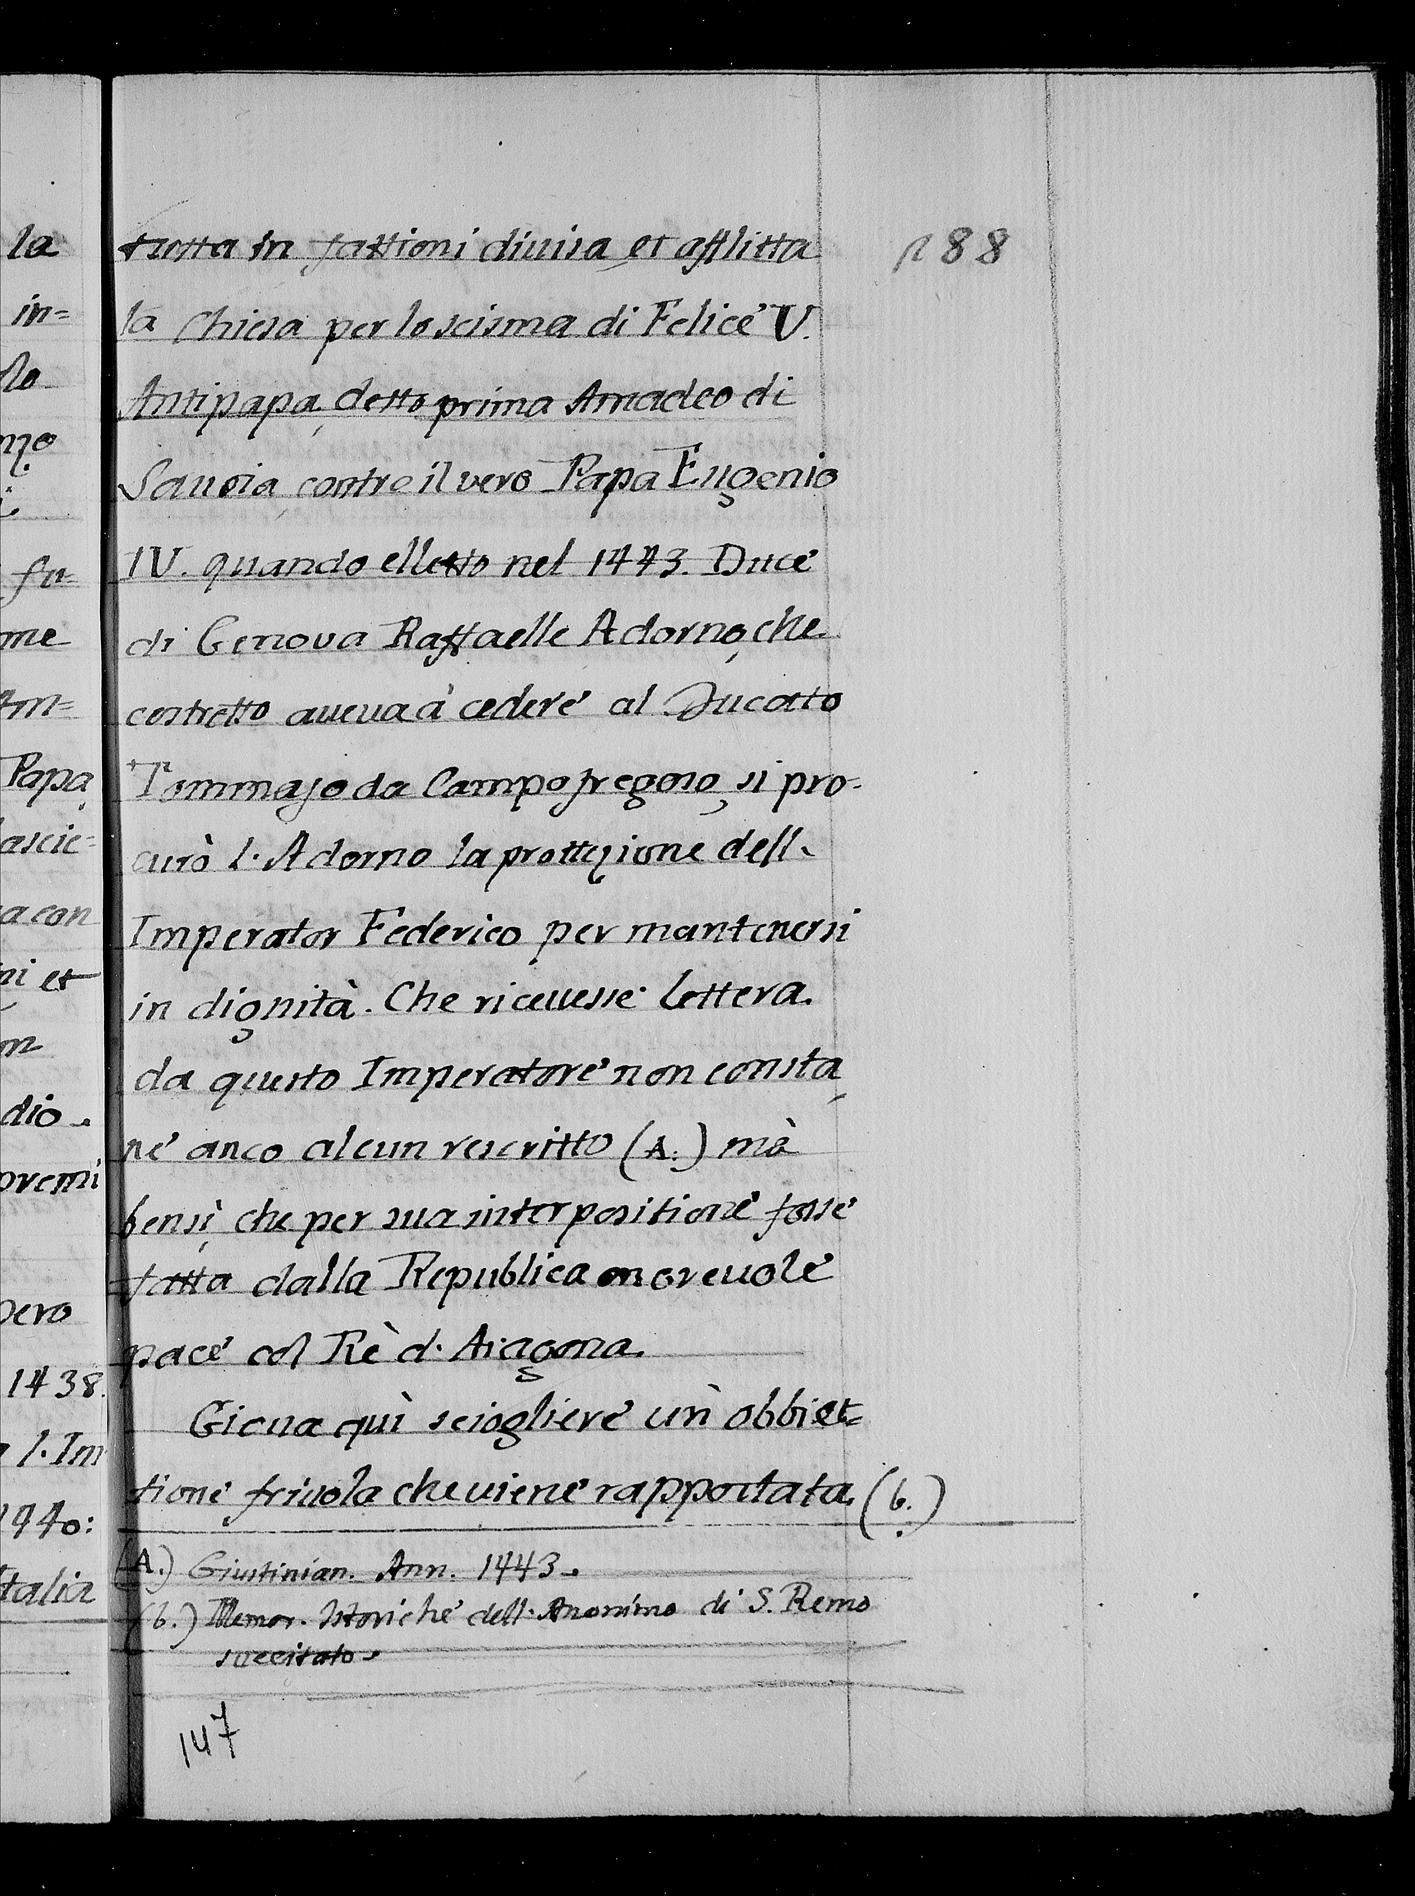 188
tutta in fattioni diuisa et afflitta
la Chiesa per lo scisma di Felice V.
Antipapa, detto prima Amadeo di
Sauoia, contro il vero Papa Eugenio
IV. quando elletto nel 1443. Duce
di Genova Raffaelle Adorno, che
costretto aueua à cedere al Ducato
Tommaso da Campofregoso, si pro-
curò l'Adorno la prottezione dell'
Imperator Federico per mantenersi
in dignità. Che riceuesse lettera
da questo Imperatore non consta,
ne anco alcun rescritto (A.) mà
bensì, che per sua interpositione fosse
fatta dalla Republica onoreuole
pace col Rè d'Aragona.
Gioua quì sciogliere un obbiet=
tione friuola che uiene rapportata. (b.)
(A.) Giustinian. Ann. 1443.
(b.) Memor. Istoriche dell'Anonimo di S. Remo
succitato.
147
la
in=
fu=
me
Papa
lascie=
a con
ni et
dio.
premi
pero
1438.
l'Im
1440:
Italia